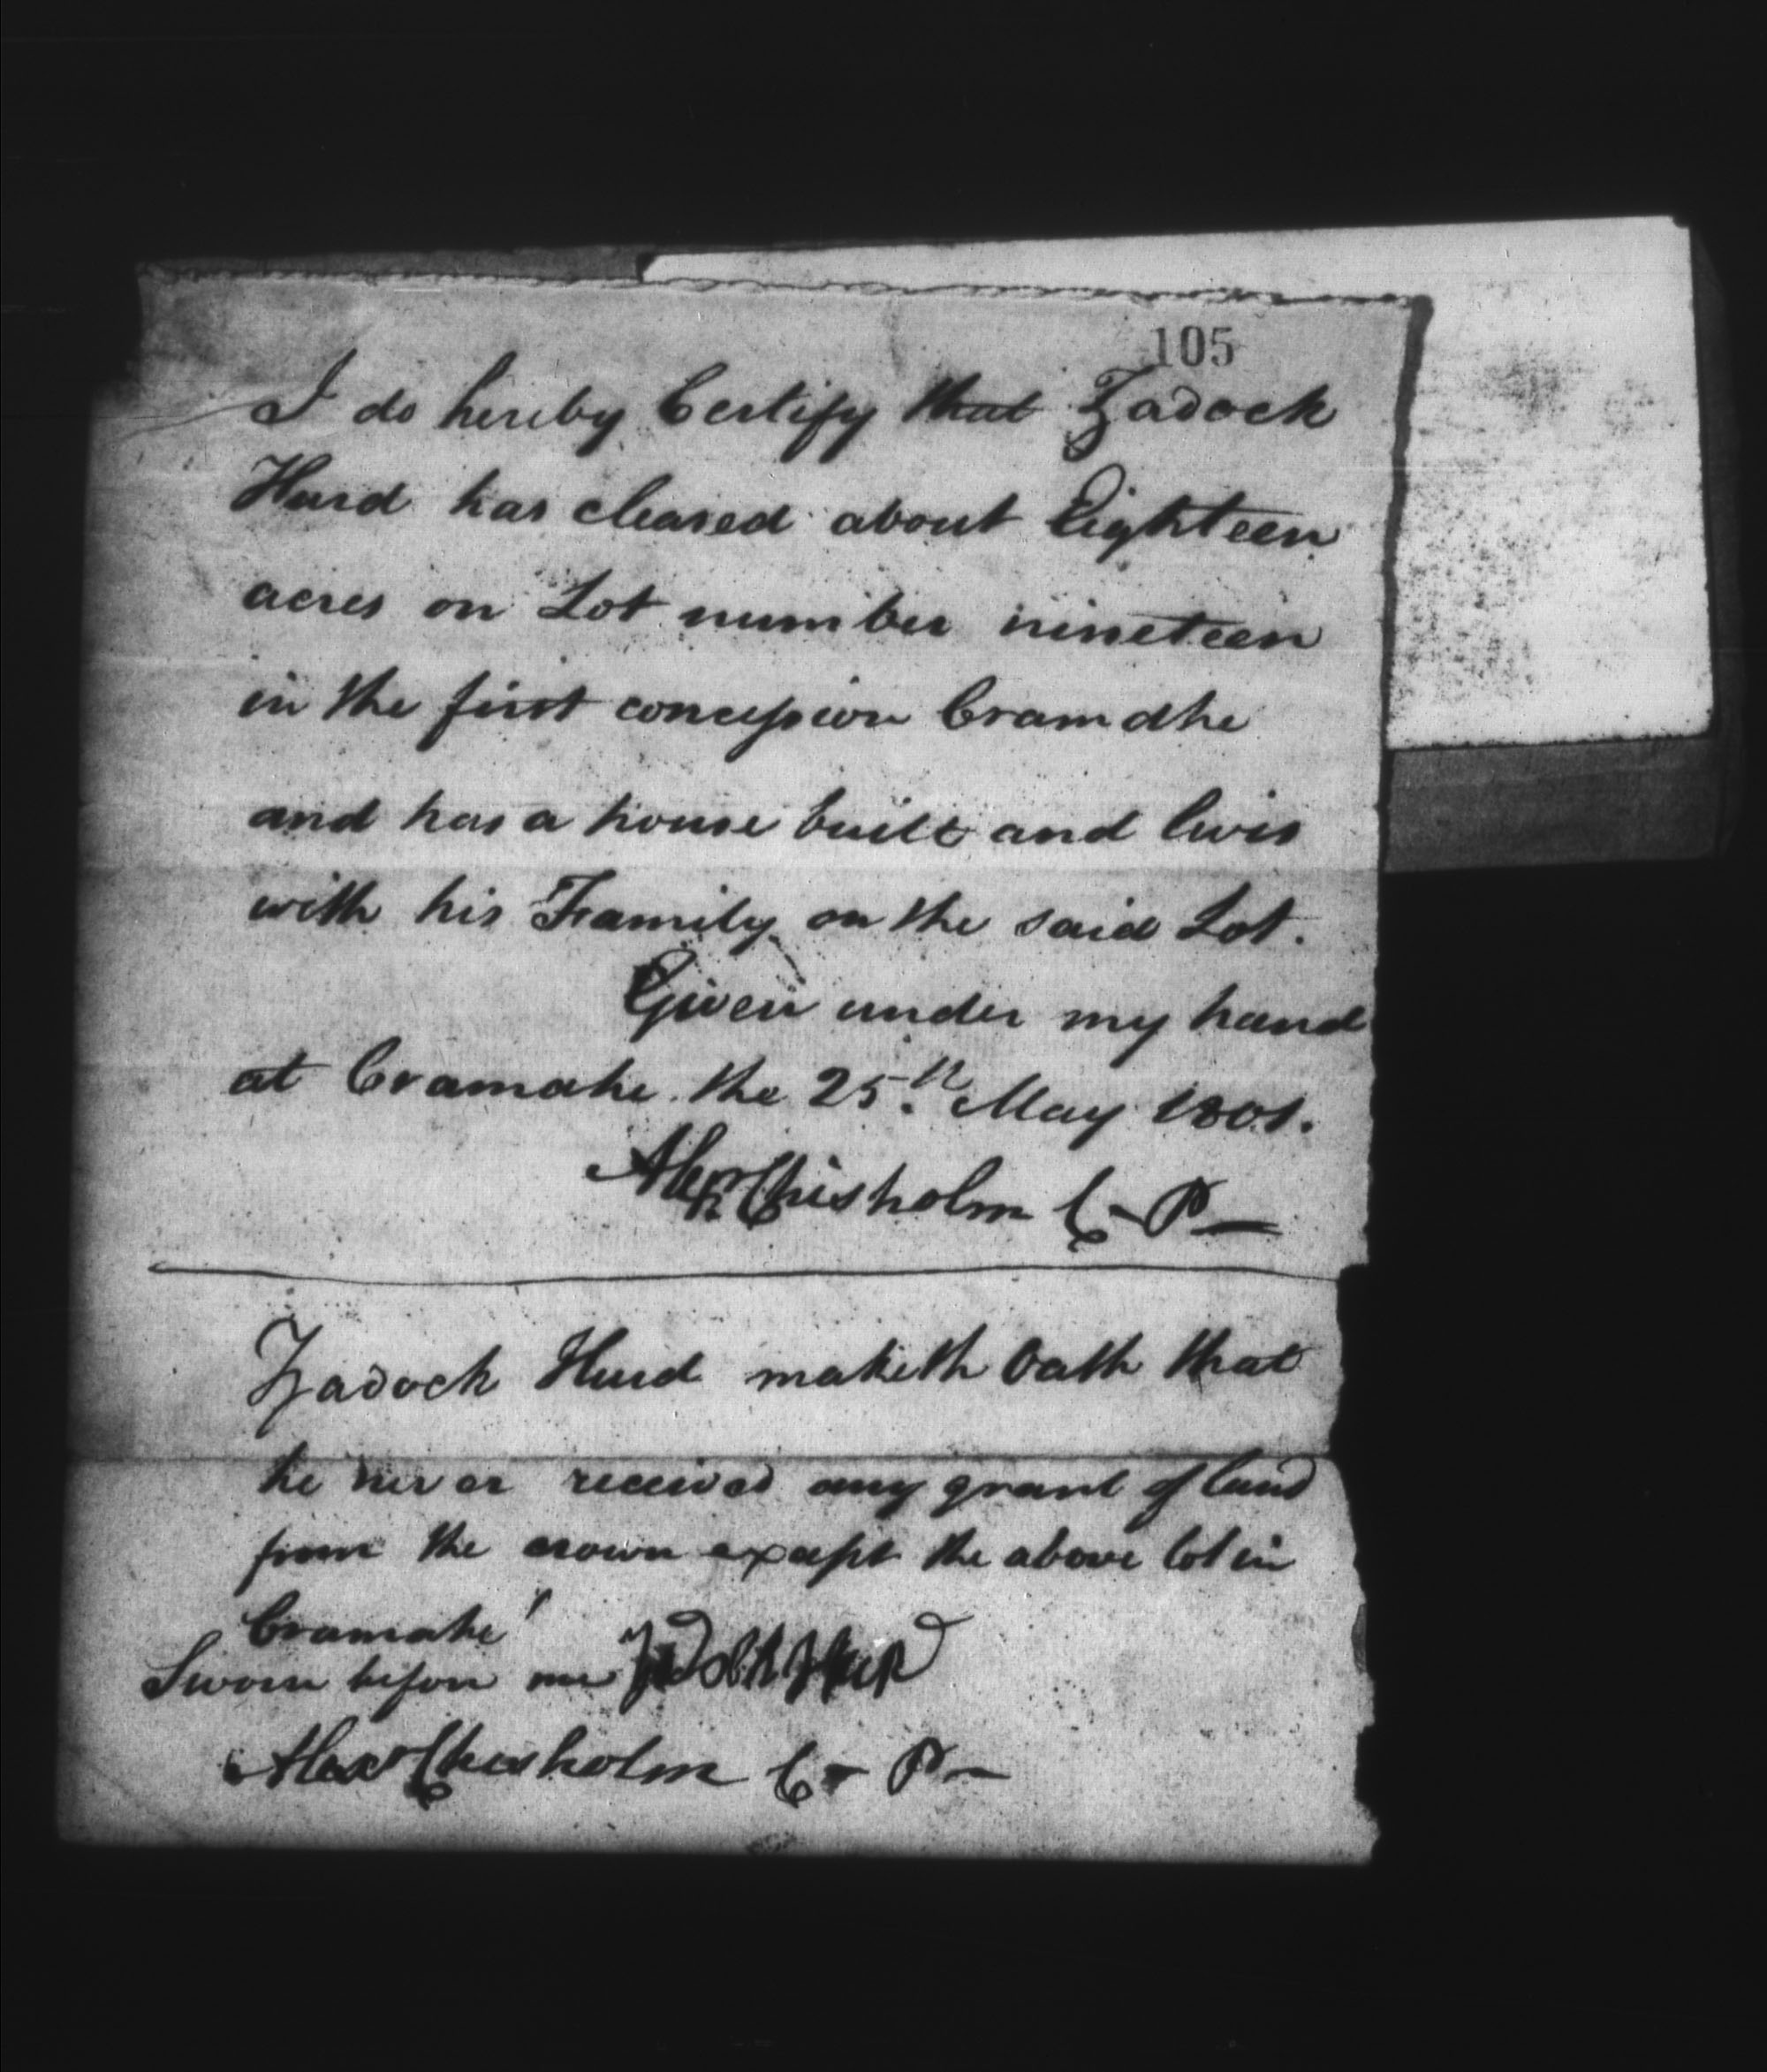 105
I do hereby Certify that Zadock
Hurd has cleared about Eighteen
acres on Lot number nineteen
in the first concession Cramahe
and has a house built and lives
with his Family on the said Lot.
Given under my hand
at Cramahe the 25th May 1801.
Alexr Chisholm C - P -
Zadock Hurd maketh Oath that
he never received any grant of land
from the crown except the above lot in
Cramahe
Sworn before me Zadok Hurd
Alexr Chisholm C - P -